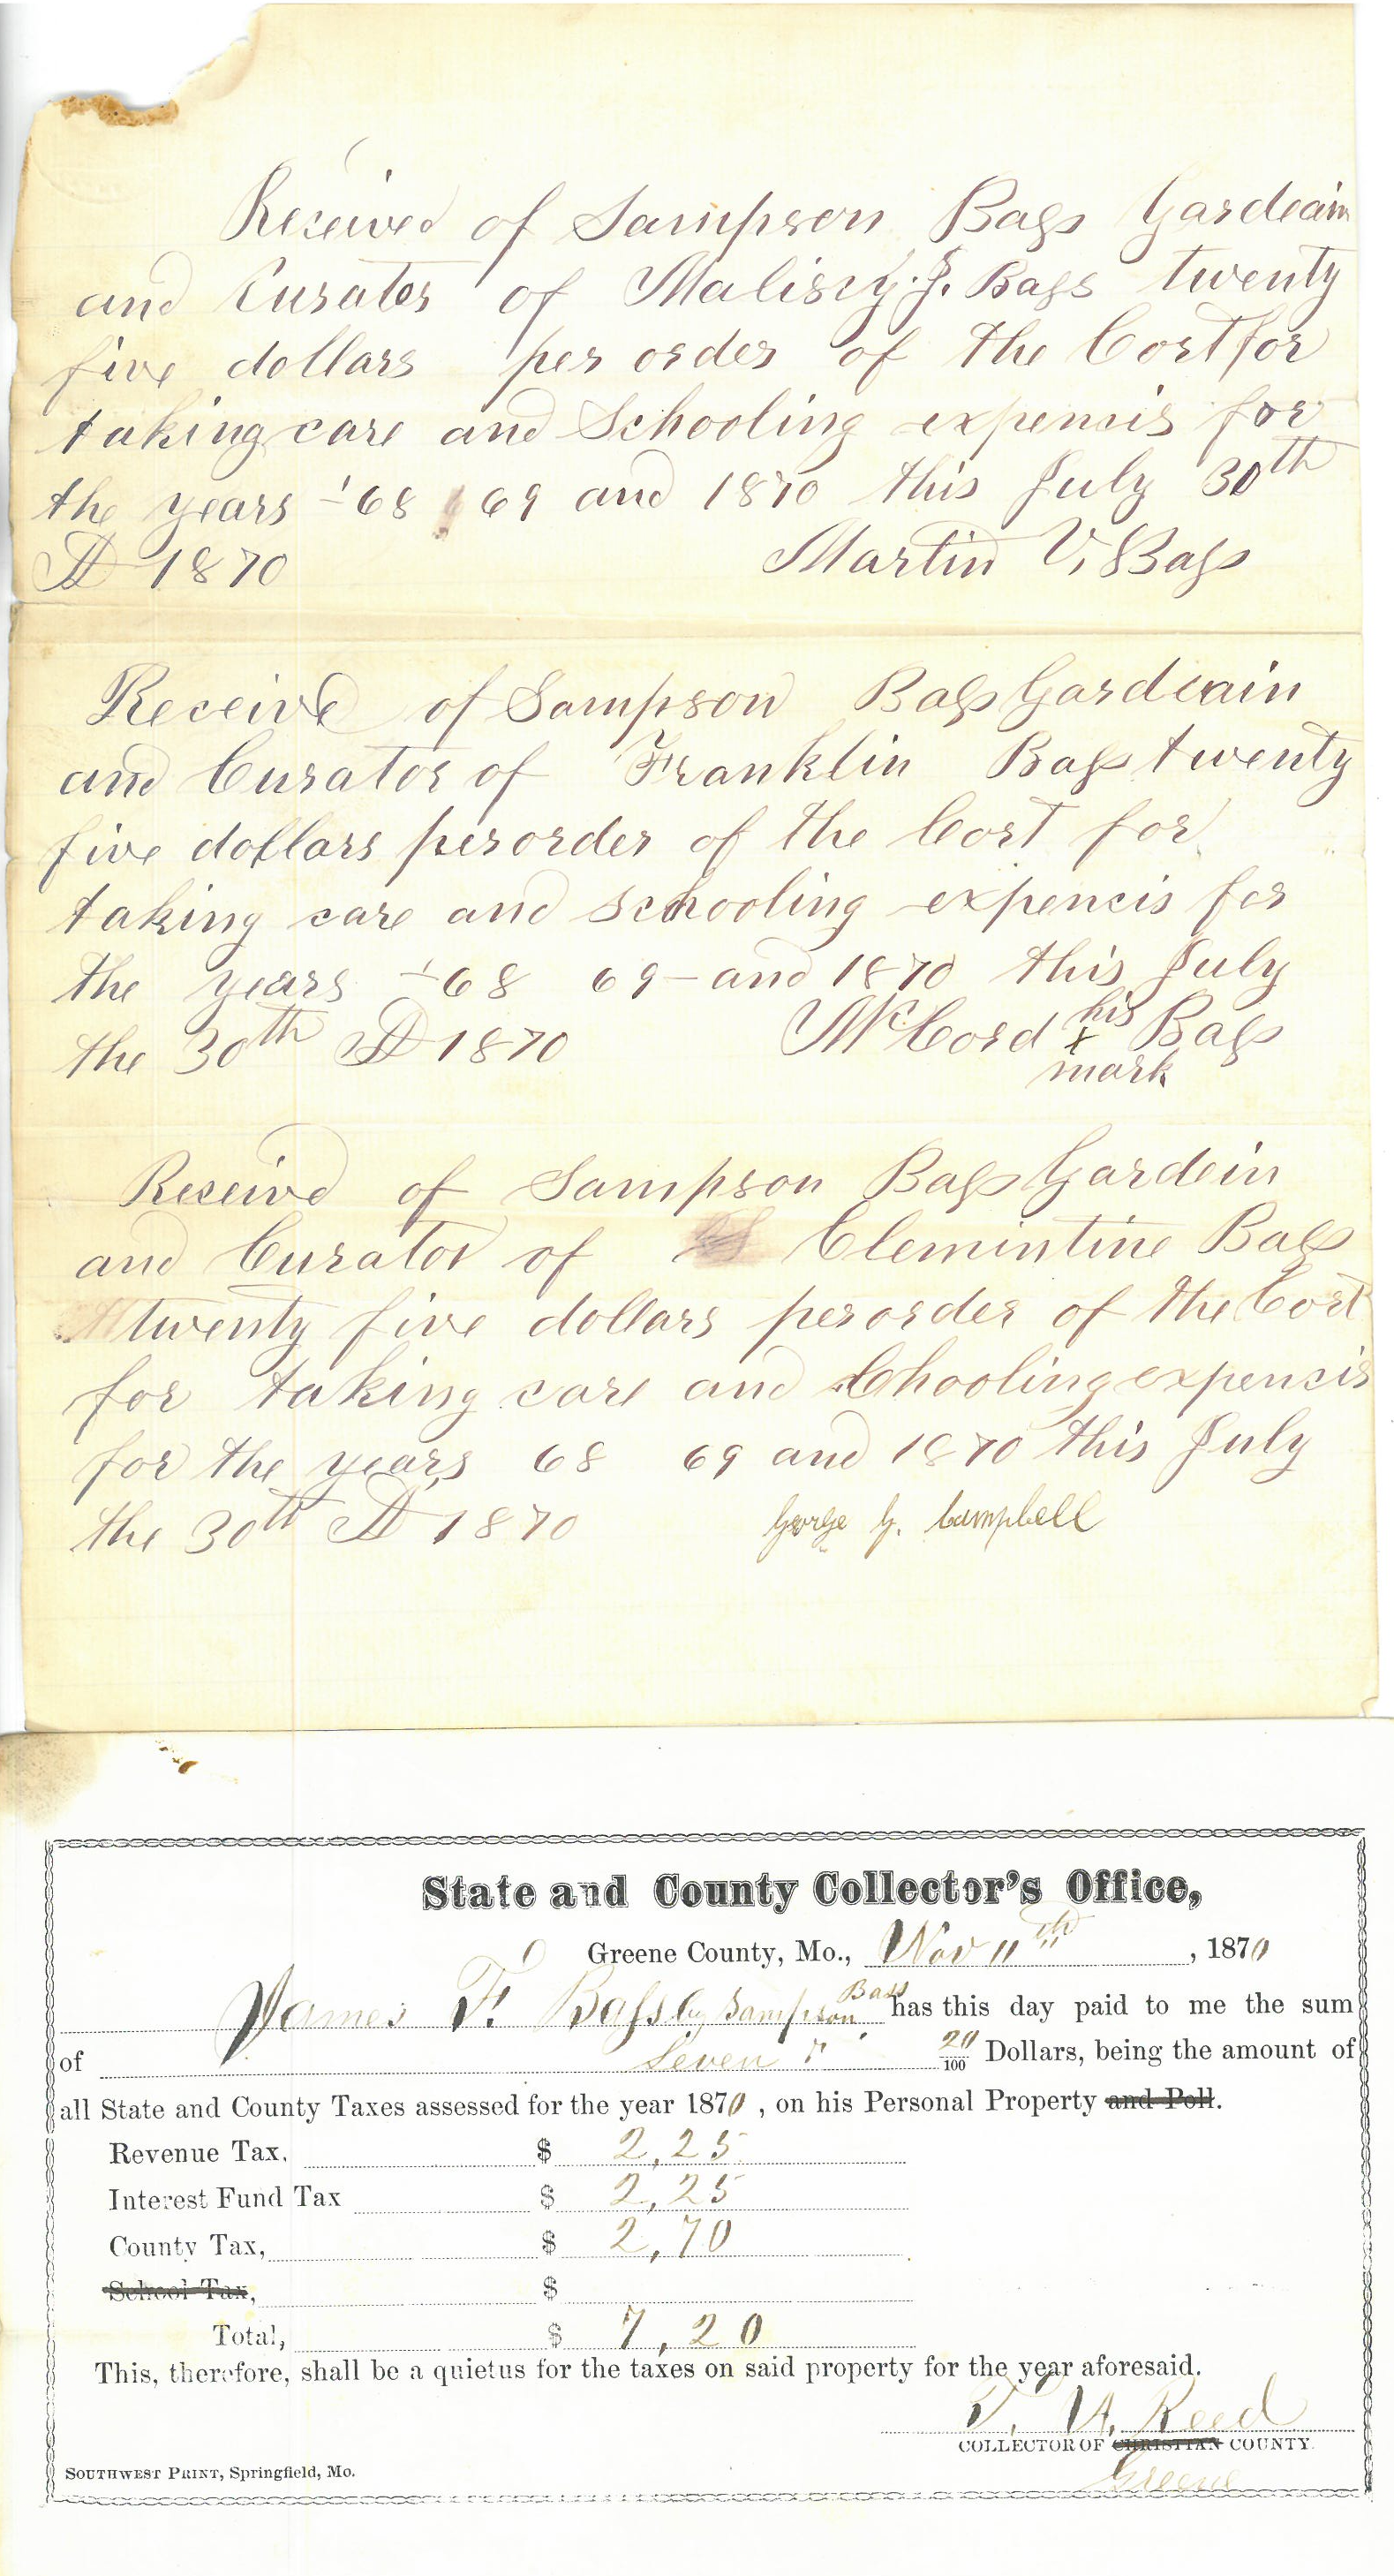 Received of Sampson Bass Gardeain
and Curator of Malisey. J. Bass twenty
five dollars per order of the Cort for
taking care and Schooling expencis for
the years -'68 69 and 1870 this July 30th
AD 1870 Martin V. Bass
Receivd of Sampson Bass Gardeain
and Curator of Franklin Bass twenty
five dollars per order of the Cort for
taking care and schooling expencis for
the years -'68 69 - and 1870 this July
the 30th AD 1870 McCord his x mark Bass
Receivd of Sampson Bass Gardein
and Curator of Clemintine Bass
twenty five dollars per order of the Cort
for taking care and Schooling expencis
for the years 68 69 and 1870 this July
the 30th AD 1870 George G. Campbell
State and County Collector's Office,
Greene County, Mo., Nov 11th, 1870
James F. Bass by Sampson Bass has this day paid to me the sum
of Seven 20/100 Dollars, being the amount of
all State and County Taxes assessed for the year 1870, on his Personal Property and Poll.
Revenue Tax. $ 2,25
Interest Fund Tax $ 2,25
County Tax, $ 2,70
School Tax, $
Total, $ 7,20
This, therefore, shall be a quietus for the taxes on said property for the year aforesaid.
T. A. Reed
COLLECTOR OF CHRISTIAN COUNTY.
Greene
SOUTHWEST PRINT, Springfield, Mo.